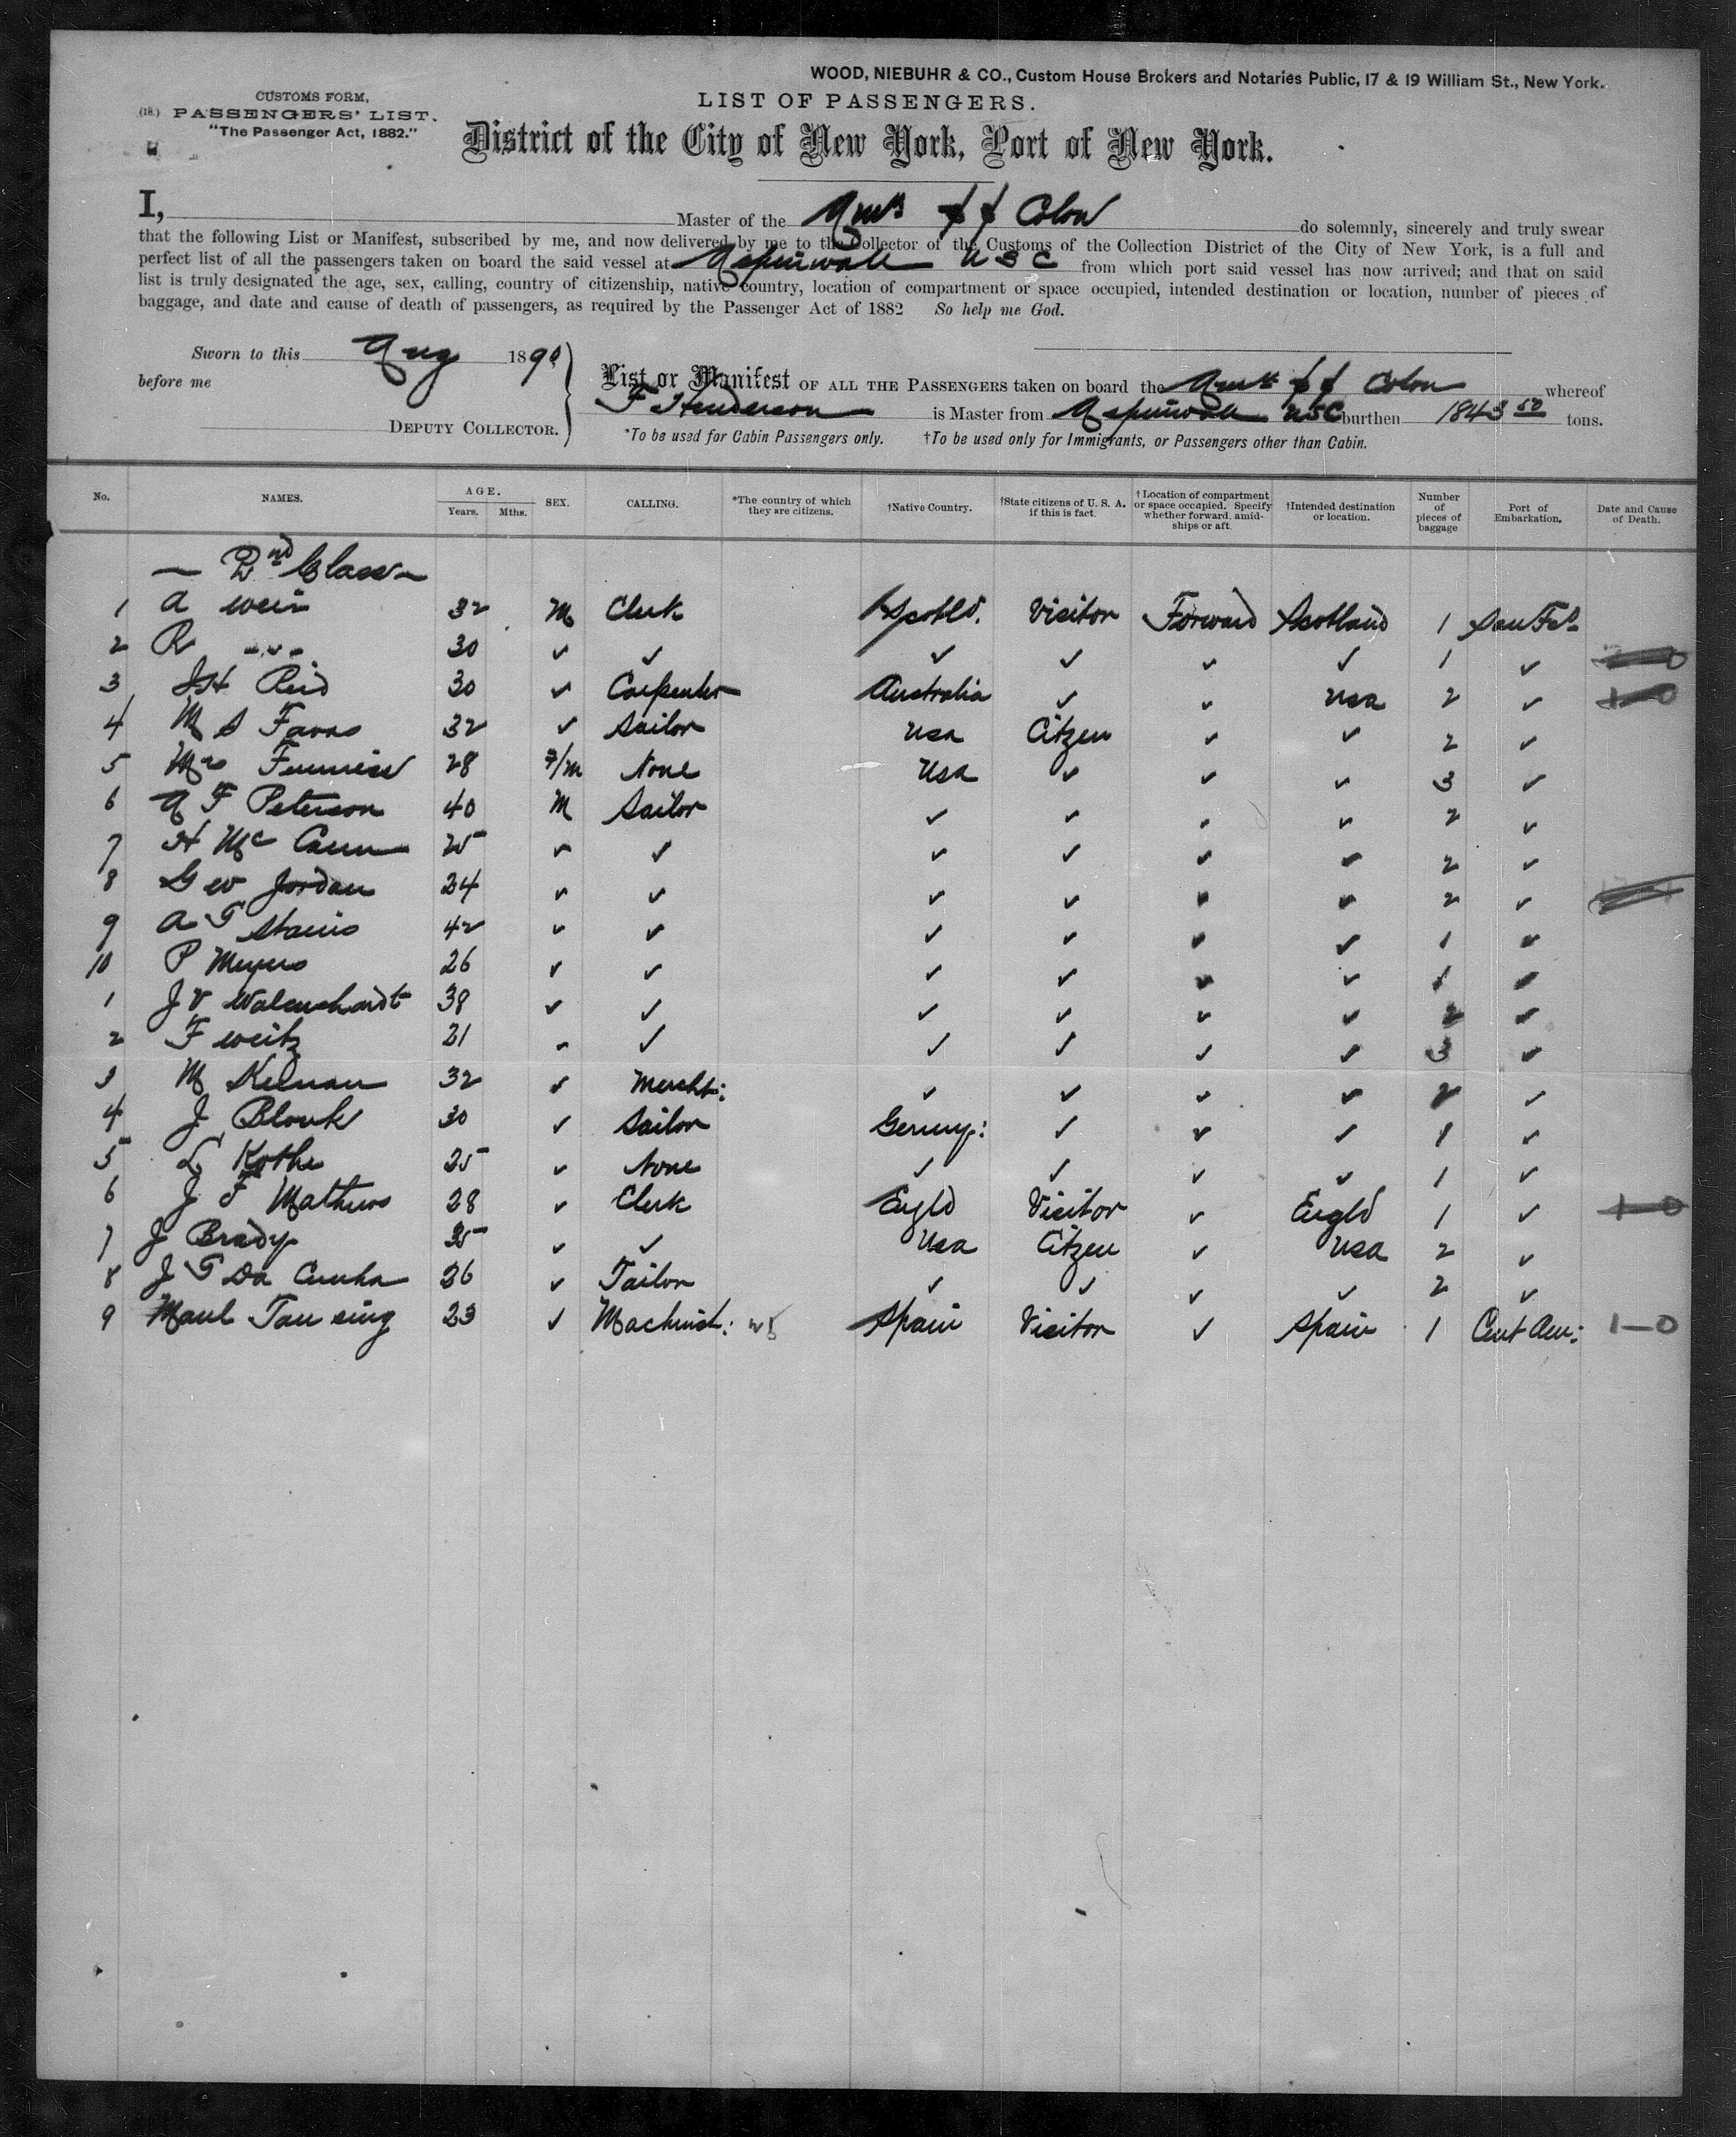 WOOD, NIEBUHR & CO., Custom House Brokers and Notaries Public, 17 & 19 William St., New York.
CUSTOMS FORM,
(18.) PASSENGERS' LIST.
"The Passenger Act, 1882."
LIST OF PASSENGERS.
District of the City of New York, Port of New York.
I, Master of the Colon do solemnly, sincerely and truly swear
that the following List or Manifest, subscribed by me, and now delivered by me to the Collector of the Customs of the Collection District of the City of New York, is a full and
perfect list of all the passengers taken on board the said vessel at Aspinwall U S C from which port said vessel has now arrived; and that on said
list is truly designated the age, sex, calling, country of citizenship, native country, location of compartment or space occupied, intended destination or location, number of pieces of
baggage, and date and cause of death of passengers, as required by the Passenger Act of 1882 So help me God.
Sworn to this Aug 1890
before me
DEPUTY COLLECTOR.
List or Manifest OF ALL THE PASSENGERS taken on board the Colon whereof
F Henderson is Master from Aspinwall USC burthen 1843 50 tons.
*To be used for Cabin Passengers only. †To be used only for Immigrants, or Passengers other than Cabin.
No. NAMES. AGE. Years. Mths. SEX. CALLING. *The country of which they are citizens. †Native Country. †State citizens of U. S. A. if this is fact. †Location of compartment or space occupied. Specify whether forward, amidships or aft. †Intended destination or location. Number of pieces of baggage Port of Embarkation. Date and Cause of Death.
— 2nd Class —
1 A Weir 32 M Clerk Scotld. Visitor Forward Scotland 1
2 R " 30 ✓ ✓ ✓ ✓ ✓ ✓ 1 ✓
3 Reid 30 ✓ Carpenter Australia ✓ ✓ Usa 2 ✓ 1-0
4 M S 32 ✓ Sailor Usa Citzen ✓ ✓ 2 ✓
5 Mrs 28 F/m None Usa ✓ ✓ ✓ 3 ✓
6 A F Peterson 40 M Sailor ✓ ✓ ✓ ✓ 2 ✓
7 H Mc Cann 25 ✓ ✓ ✓ ✓ ✓ ✓ 2 ✓
8 Jordan 24 ✓ ✓ ✓ ✓ ✓ ✓ 2 ✓
9 A 42 ✓ ✓ ✓ ✓ ✓ ✓ 1 ✓
10 P Meyers 26 ✓ ✓ ✓ ✓ ✓ ✓ 1 ✓
1 J V 38 ✓ ✓ ✓ ✓ ✓ ✓ 2 ✓
2 F Weitz 21 ✓ ✓ ✓ ✓ ✓ ✓ 3 ✓
3 M 32 ✓ Mercht: ✓ ✓ ✓ ✓ 2 ✓
4 J 30 ✓ Sailor Germy: ✓ ✓ ✓ 1 ✓
5 L Kothe 25 ✓ None ✓ ✓ ✓ ✓ 1 ✓
6 J F Mathews 28 ✓ Clerk Engld Visitor ✓ Engld 1 ✓ 1-0
7 J Brady ✓ ✓ Usa Citzen ✓ Usa 2 ✓
8 Da Cunha 26 ✓ Tailor ✓ ✓ ✓ ✓ 2 ✓
9 Manl Tau sing 23 ✓ Machnist: Spain Visitor ✓ Spain 1 Cent Am: 1-0